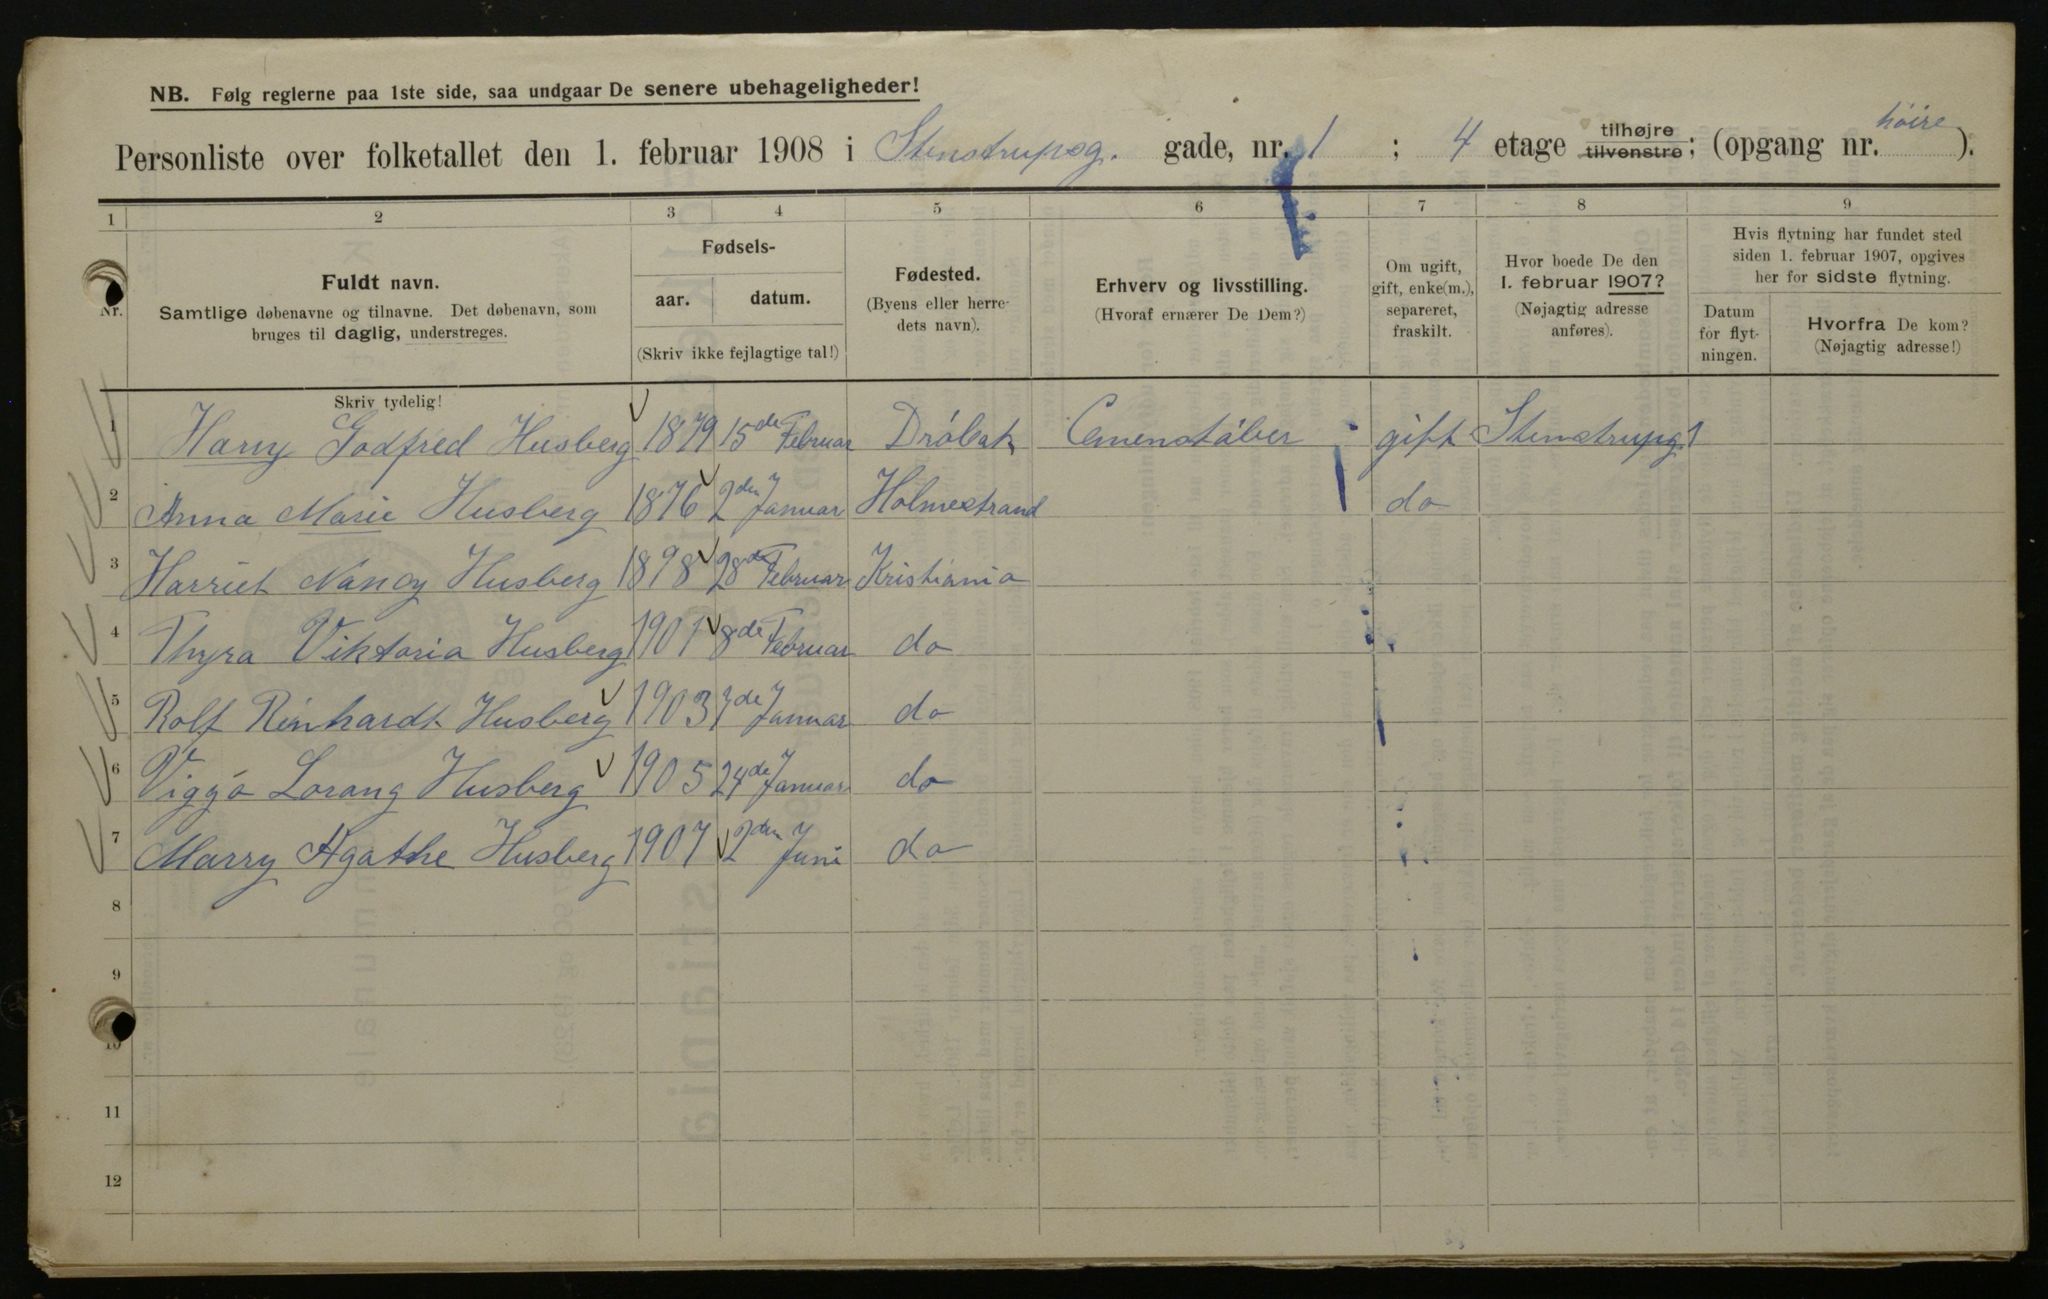 NB. Følg reglerne paa 1ste side, saa undgaar De senere ubehageligheder!
Personliste over folketallet den 1. februar 1908 i Stenstrupsg. gade, nr. 1 ; 4 etage tilhøjre tilvenstre; (opgang nr. høire ).
1 2 3 4 5 6 7 8 9
Nr.
Fuldt navn.
Samtlige døbenavne og tilnavne. Det døbenavn, som
bruges til daglig, understreges.
Fødsels-
aar. datum.
(Skriv ikke fejlagtige tal!)
Fødested.
(Byens eller herre-
dets navn).
Erhverv og livsstilling.
(Hvoraf ernærer De Dem?)
Om ugift,
gift, enke(m.),
separeret,
fraskilt.
Hvor boede De den
1. februar 1907?
(Nøjagtig adresse
anføres).
Hvis flytning har fundet sted
siden 1. februar 1907, opgives
her for sidste flytning.
Datum
for flyt-
ningen.
Hvorfra De kom?
(Nøjagtig adresse!)
Skriv tydelig!
1 Harry Godfred Husberg 1879 15de Februar Dröbak Cemenstöber gift Stenstrupg 1
2 Anna Marie Husberg 1876 2den Januar Holmestrand do
3 Harriet Nancy Husberg 1898 28de Februar Kristiania
4 Thyra Viktoria Husberg 1901 8de Februar do
5 Rolf Reinhardt Husberg 1903 7de Januar do
6 Viggo Lorang Husberg 1905 24de Januar do
7 Marry Agathe Husberg 1907 2den Juni do
8
9
10
11
12